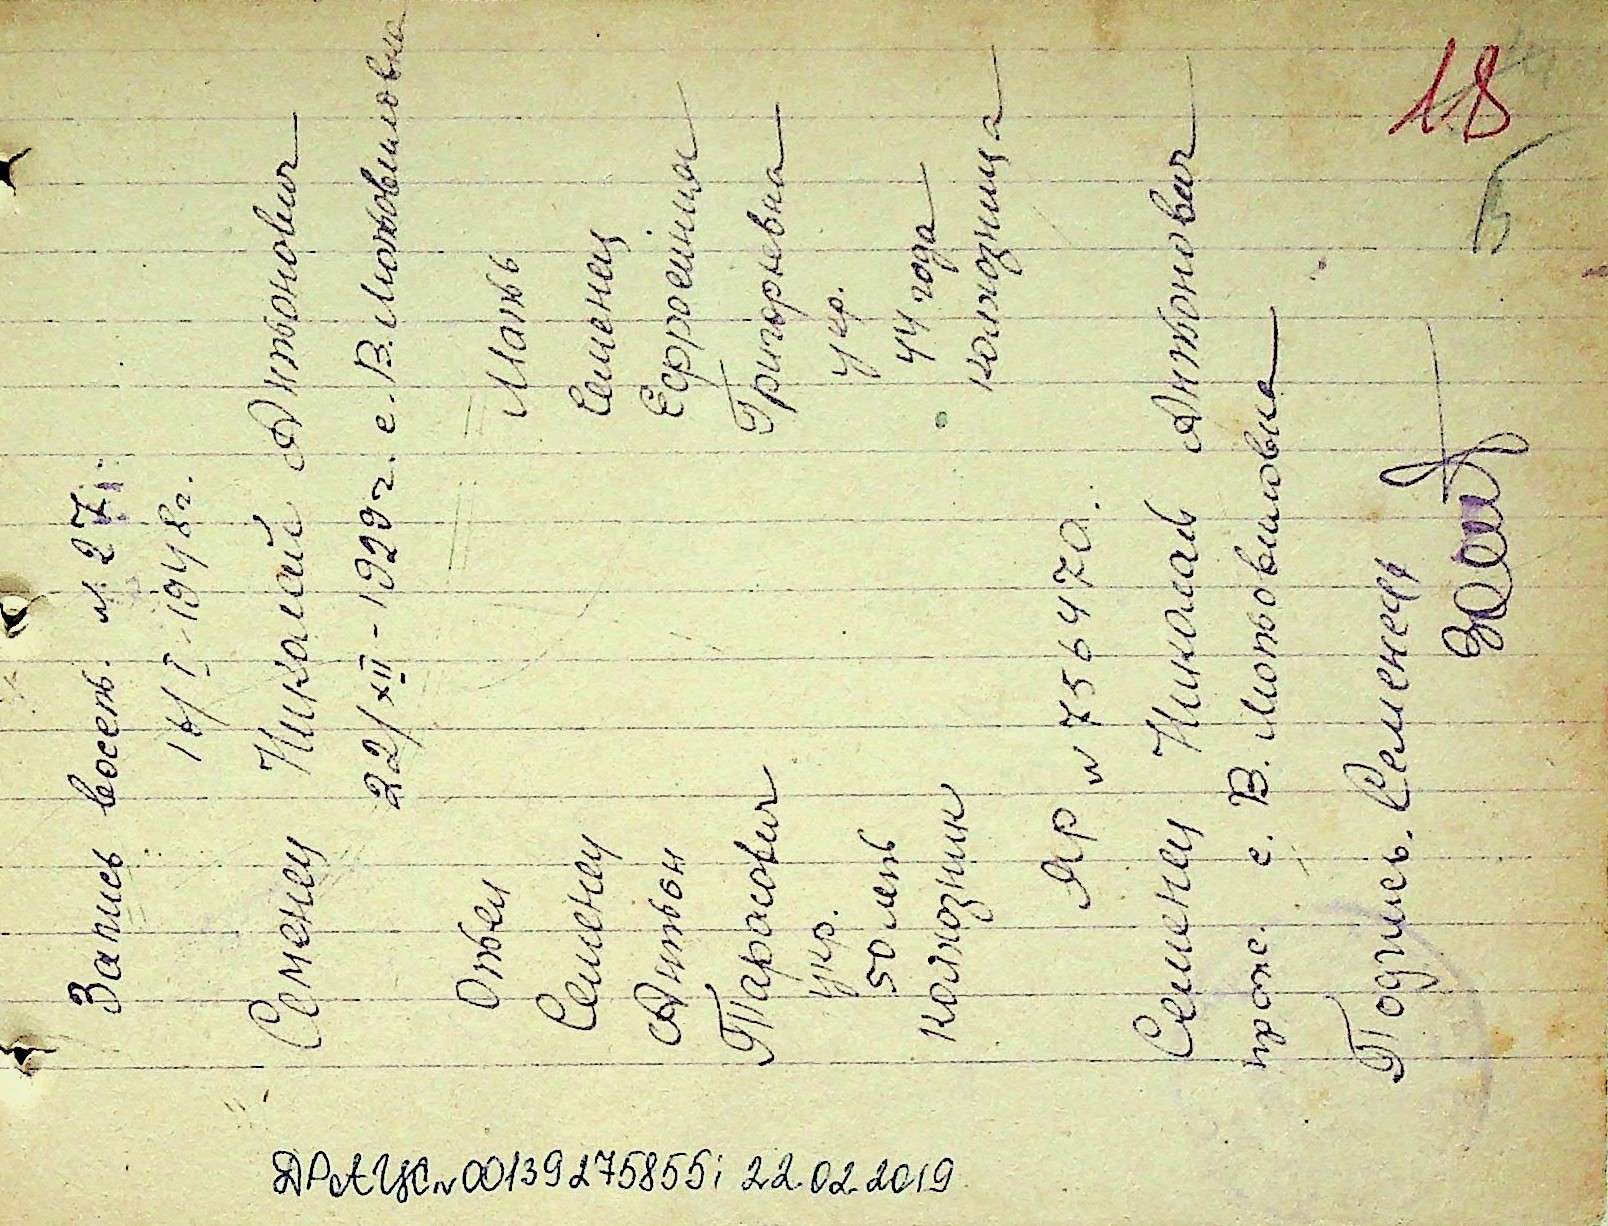 Запись восст. № 27.
16/I-1948г.
Семенец Николай Антонович
22/XII-1929г. с. В. Мотовиловка
Отец
Семенец
Антон
Тарасович
укр.
50 лет
колхозник
Мать
Семенец
Ефросиния
Григорьевна
укр.
44 года
колхозница
ЯР № 756470.
Семенец Николай Антонович
прож. с. В. Мотовиловка
Подпись. Семенец
18
ДРАЦС № 00139275855; 22.02.2019